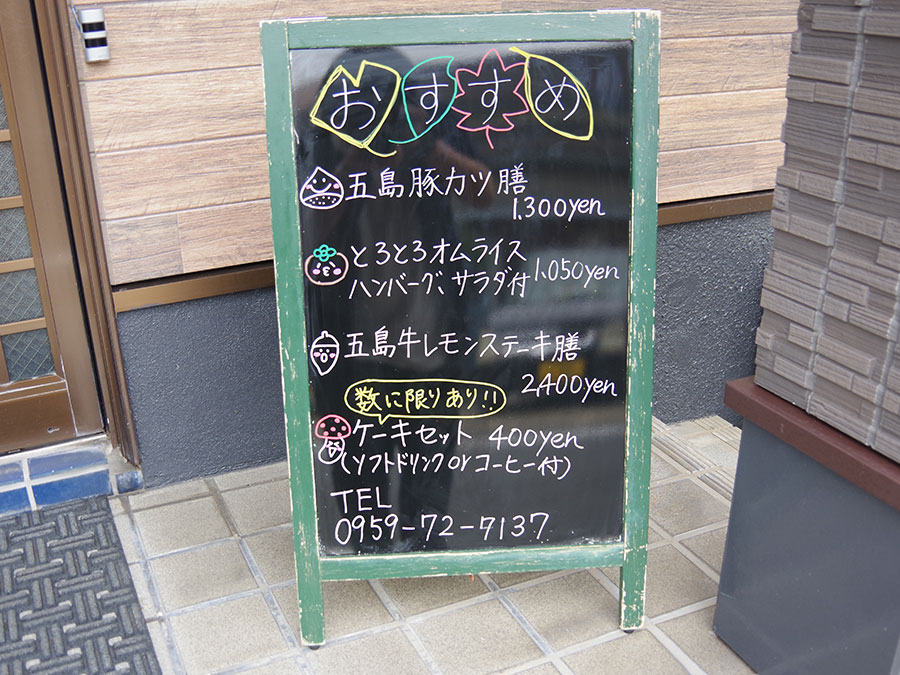 おすすめ
五島豚カツ膳
1,300yen
とろとろオムライス
ハンバーグ、サラダ付 1,050yen
五島牛レモンステーキ膳
2,400yen
数に限りあり!!
ケーキセット 400yen
(ソフトドリンク or コーヒー付)
TEL
0959-72-7137